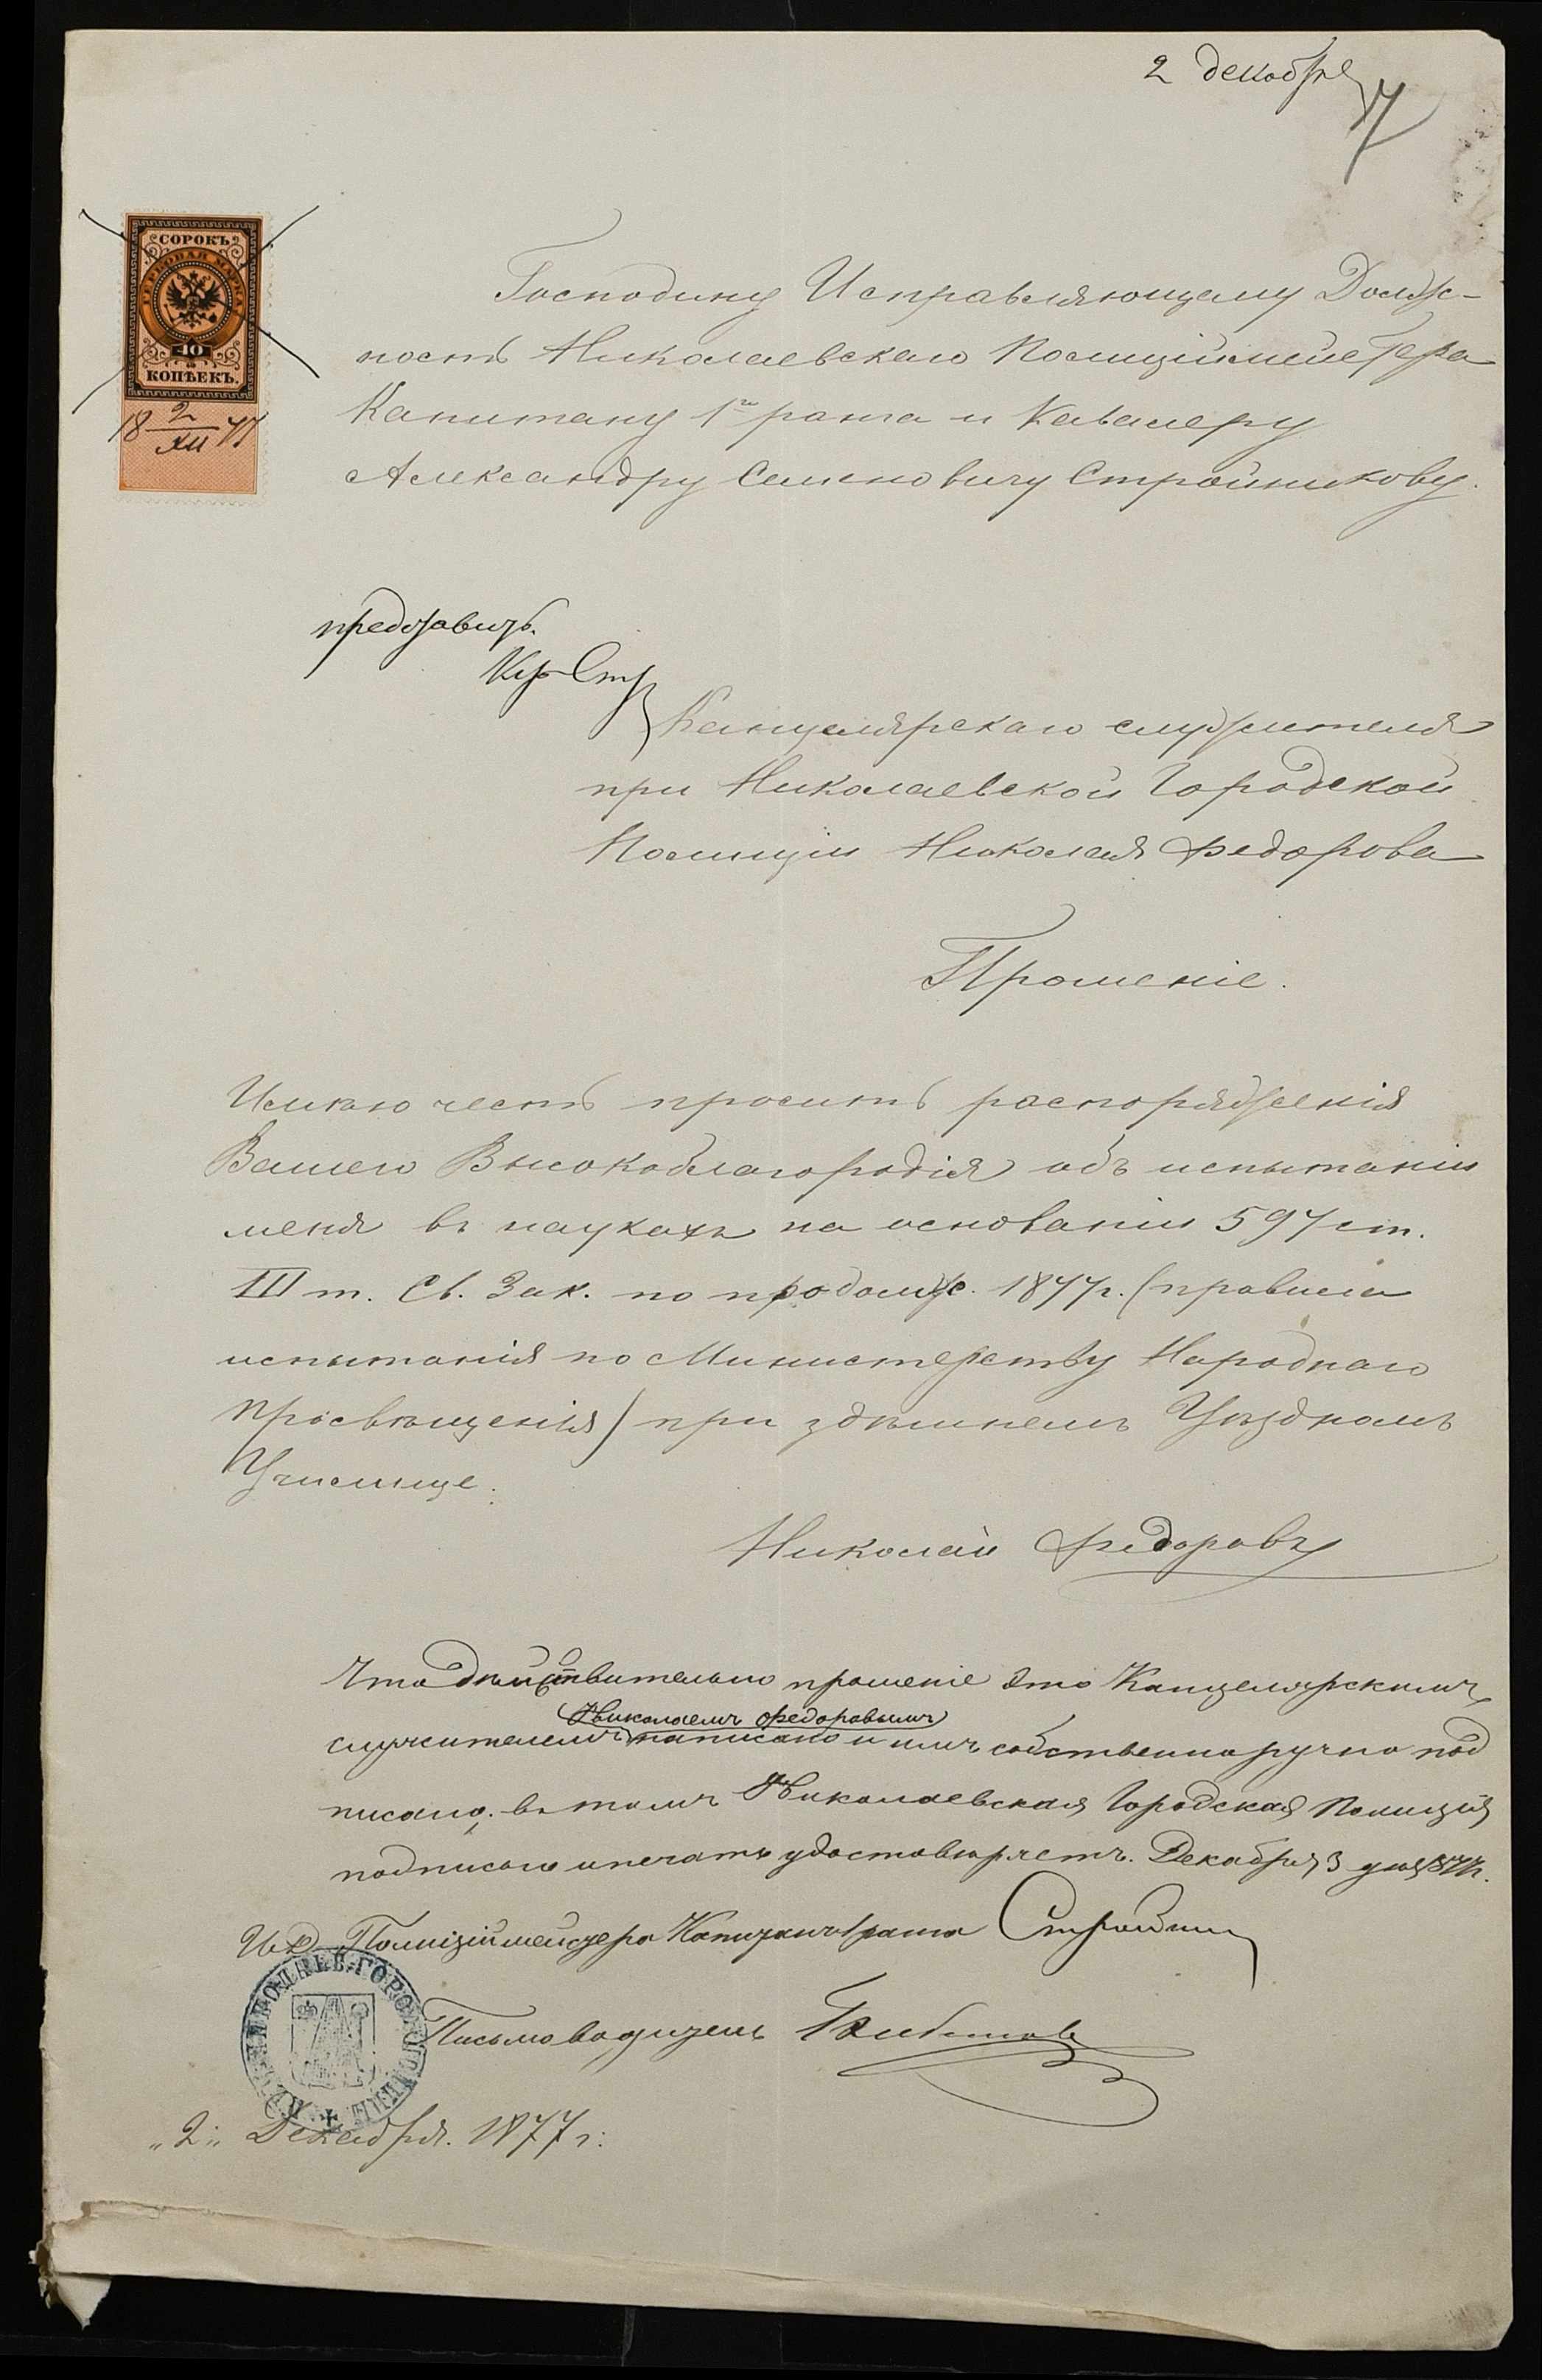 2 декабря
7
СОРОКЪ
ГЕРБОВАЯ МАРКА
40
КОПѢЕКЪ.
18 2/XII 77
Господину Исправляющему Долж-
ность Николаевскаго Полиціймейстера
Капитану 1го ранга и Кавалеру
Александру Семеновичу Стройникову.
представить.
Канцелярскаго служителя
при Николаевской Городской
Полиціи Николая Федорова
Прошеніе.
Имѣю честь просить распоряженія
Вашего Высокоблагородія объ испытаніи
меня въ наукахъ на основаніи 597 ст.
III т. Св. Зак. по продолж. 1877 г. (правила
испытанія по Министерству Народнаго
Просвѣщенія) при здѣшнемъ Уѣздномъ
Училище.
Николай Федоровъ
Что дѣйствительно прошеніе это Канцелярскимъ
Николаемъ Федоровымъ
служителемъ написано и имъ собственноручно под
писано; въ томъ Николаевская Городская Полиція
подписью и печатью удостовѣряетъ. Декабря 3 дня 1877 г.
И.д. Полиціймейстера Капитанъ 1 ранга
Письмоводитель
НИКОЛАЕВ. ГОРОД. ПОЛИЦІИ
„2„ Декабря. 1877 г: